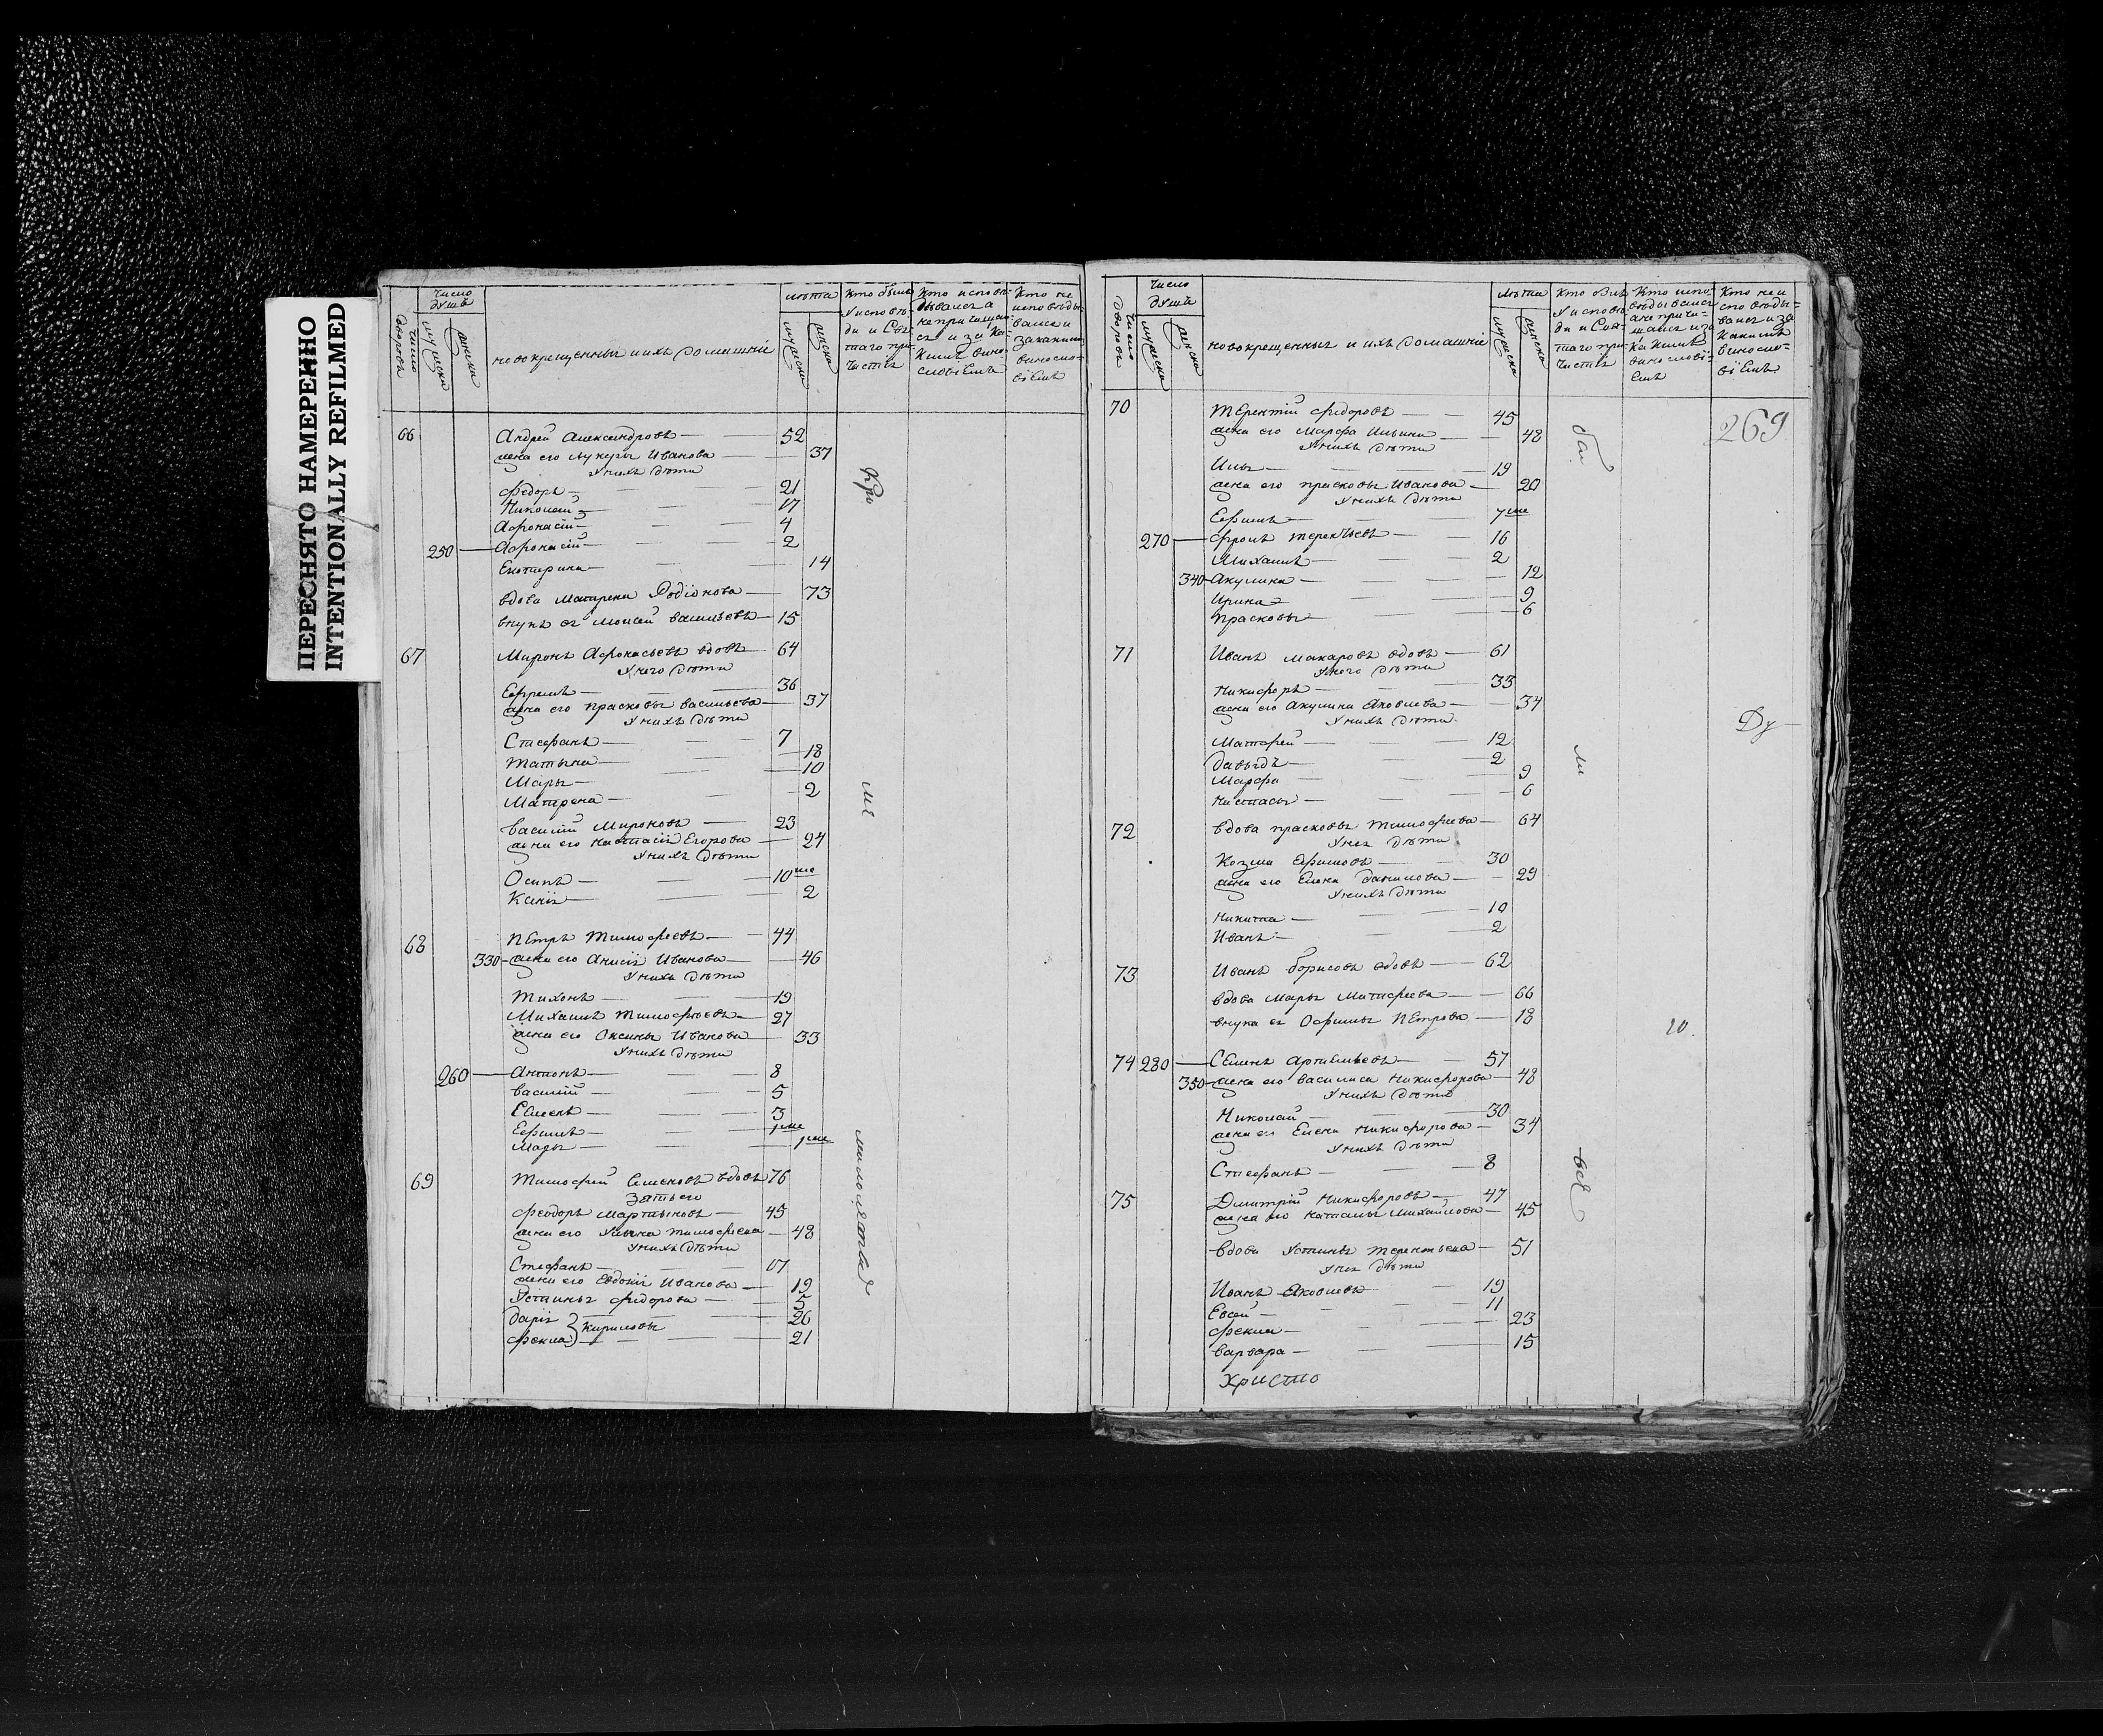 ПЕРЕСНЯТО НАМЕРЕННО
INTENTIONALLY REFILMED
Число дворовъ
Число душъ
мужеска
женска
новокрещенныя и ихъ домашніе
лѣта
мужеска
женска
Кто былъ у исповѣди и Святаго причастія
Кто исповѣдывался а не причащался и за какимъ винословіемъ
Кто не исповѣдывался и за какимъ винословіемъ
66 Андрей Александровъ 52
жена его Лукерья Иванова 37
у нихъ дѣти
Федоръ 21
Николай 17
Афонасій 4
250 Афонасій 2
Екатерина 14
вдова Матрена Родіонова 73
внукъ ея Моисей Васильевъ 15
67 Миронъ Афонасьевъ вдовъ 64
у него дѣти
Ефремъ 36
жена его Прасковья Васильева 37
у нихъ дѣти
Стефанъ 7
Татьяна 18
Марья 10
Матрена 2
Василій Мироновъ 23
жена его Настасія Егорова 24
у нихъ дѣти
Осипъ 10 ме
Ксенія 2
68 Петръ Тимофеевъ 44
330 жена его Анисія Иванова 46
у нихъ дѣти
Тихонъ 19
Михаилъ Тимофѣевъ 27
жена его Оксинья Иванова 33
у нихъ дѣти
260 Антонъ 8
Василій 5
Семенъ 3
Ефимъ 1 ме
Марья 1 ме
69 Тимофей Семеновъ вдовъ 76
зять его
Феодоръ Мартыновъ 45
жена его Ульяна Тимофеева 48
у нихъ дѣти
Стефанъ 17
жена его Евдокія Иванова 19
Устинья Федорова 5
Дарія 26
Кириловы
Фекла 21
кро
ме
малолѣтныхъ
Число дворовъ
Число душъ
мужеска
женска
новокрещенныя и ихъ домашніе
лѣта
мужеска
женска
Кто былъ у исповѣди и Святаго причастія
Кто исповѣдывался а не причащался и за какимъ винословіемъ
Кто не исповѣдывался и за какимъ винословіемъ
269
70 Терентій Федоровъ 45
жена его Марфа Ильина 48
у нихъ дѣти
Илья 19
жена его Прасковья Иванова 20
у нихъ дѣти
Ефимъ 7 ме
270 Фролъ Терентьевъ 16
Михаилъ 2
340 Акулина 12
Ирина 9
Прасковья 6
71 Иванъ Макаровъ вдовъ 61
у него дѣти
Никифоръ 33
жена его Акулина Яковлева 34
у нихъ дѣти
Матфей 12
Давыдъ 2
Марфа 9
Настасья 6
72 вдова Прасковья Тимофеева 64
у нея дѣти
Козма Ефимовъ 30
жена его Елена Данилова 29
у нихъ дѣти
Никита 10
Иванъ 2
73 Иванъ Борисовъ вдовъ 62
вдова Марья Матфеева 66
внука ея Офимья Петрова 18
74 280 Семенъ Артемьевъ 57
350 жена его Василиса Никифорова 48
у нихъ дѣти
Николай 30
жена его Елена Никифорова 34
у нихъ дѣти
Стефанъ 8
75 Димитрій Никифоровъ 47
жена его Наталья Михайлова 45
вдова Устинья Терентьева 51
у нея дѣти
Иванъ Яковлевъ 19
Евсей 11
Фекла 23
Варвара 15
Христо
бы
ли
всѣ
Ду